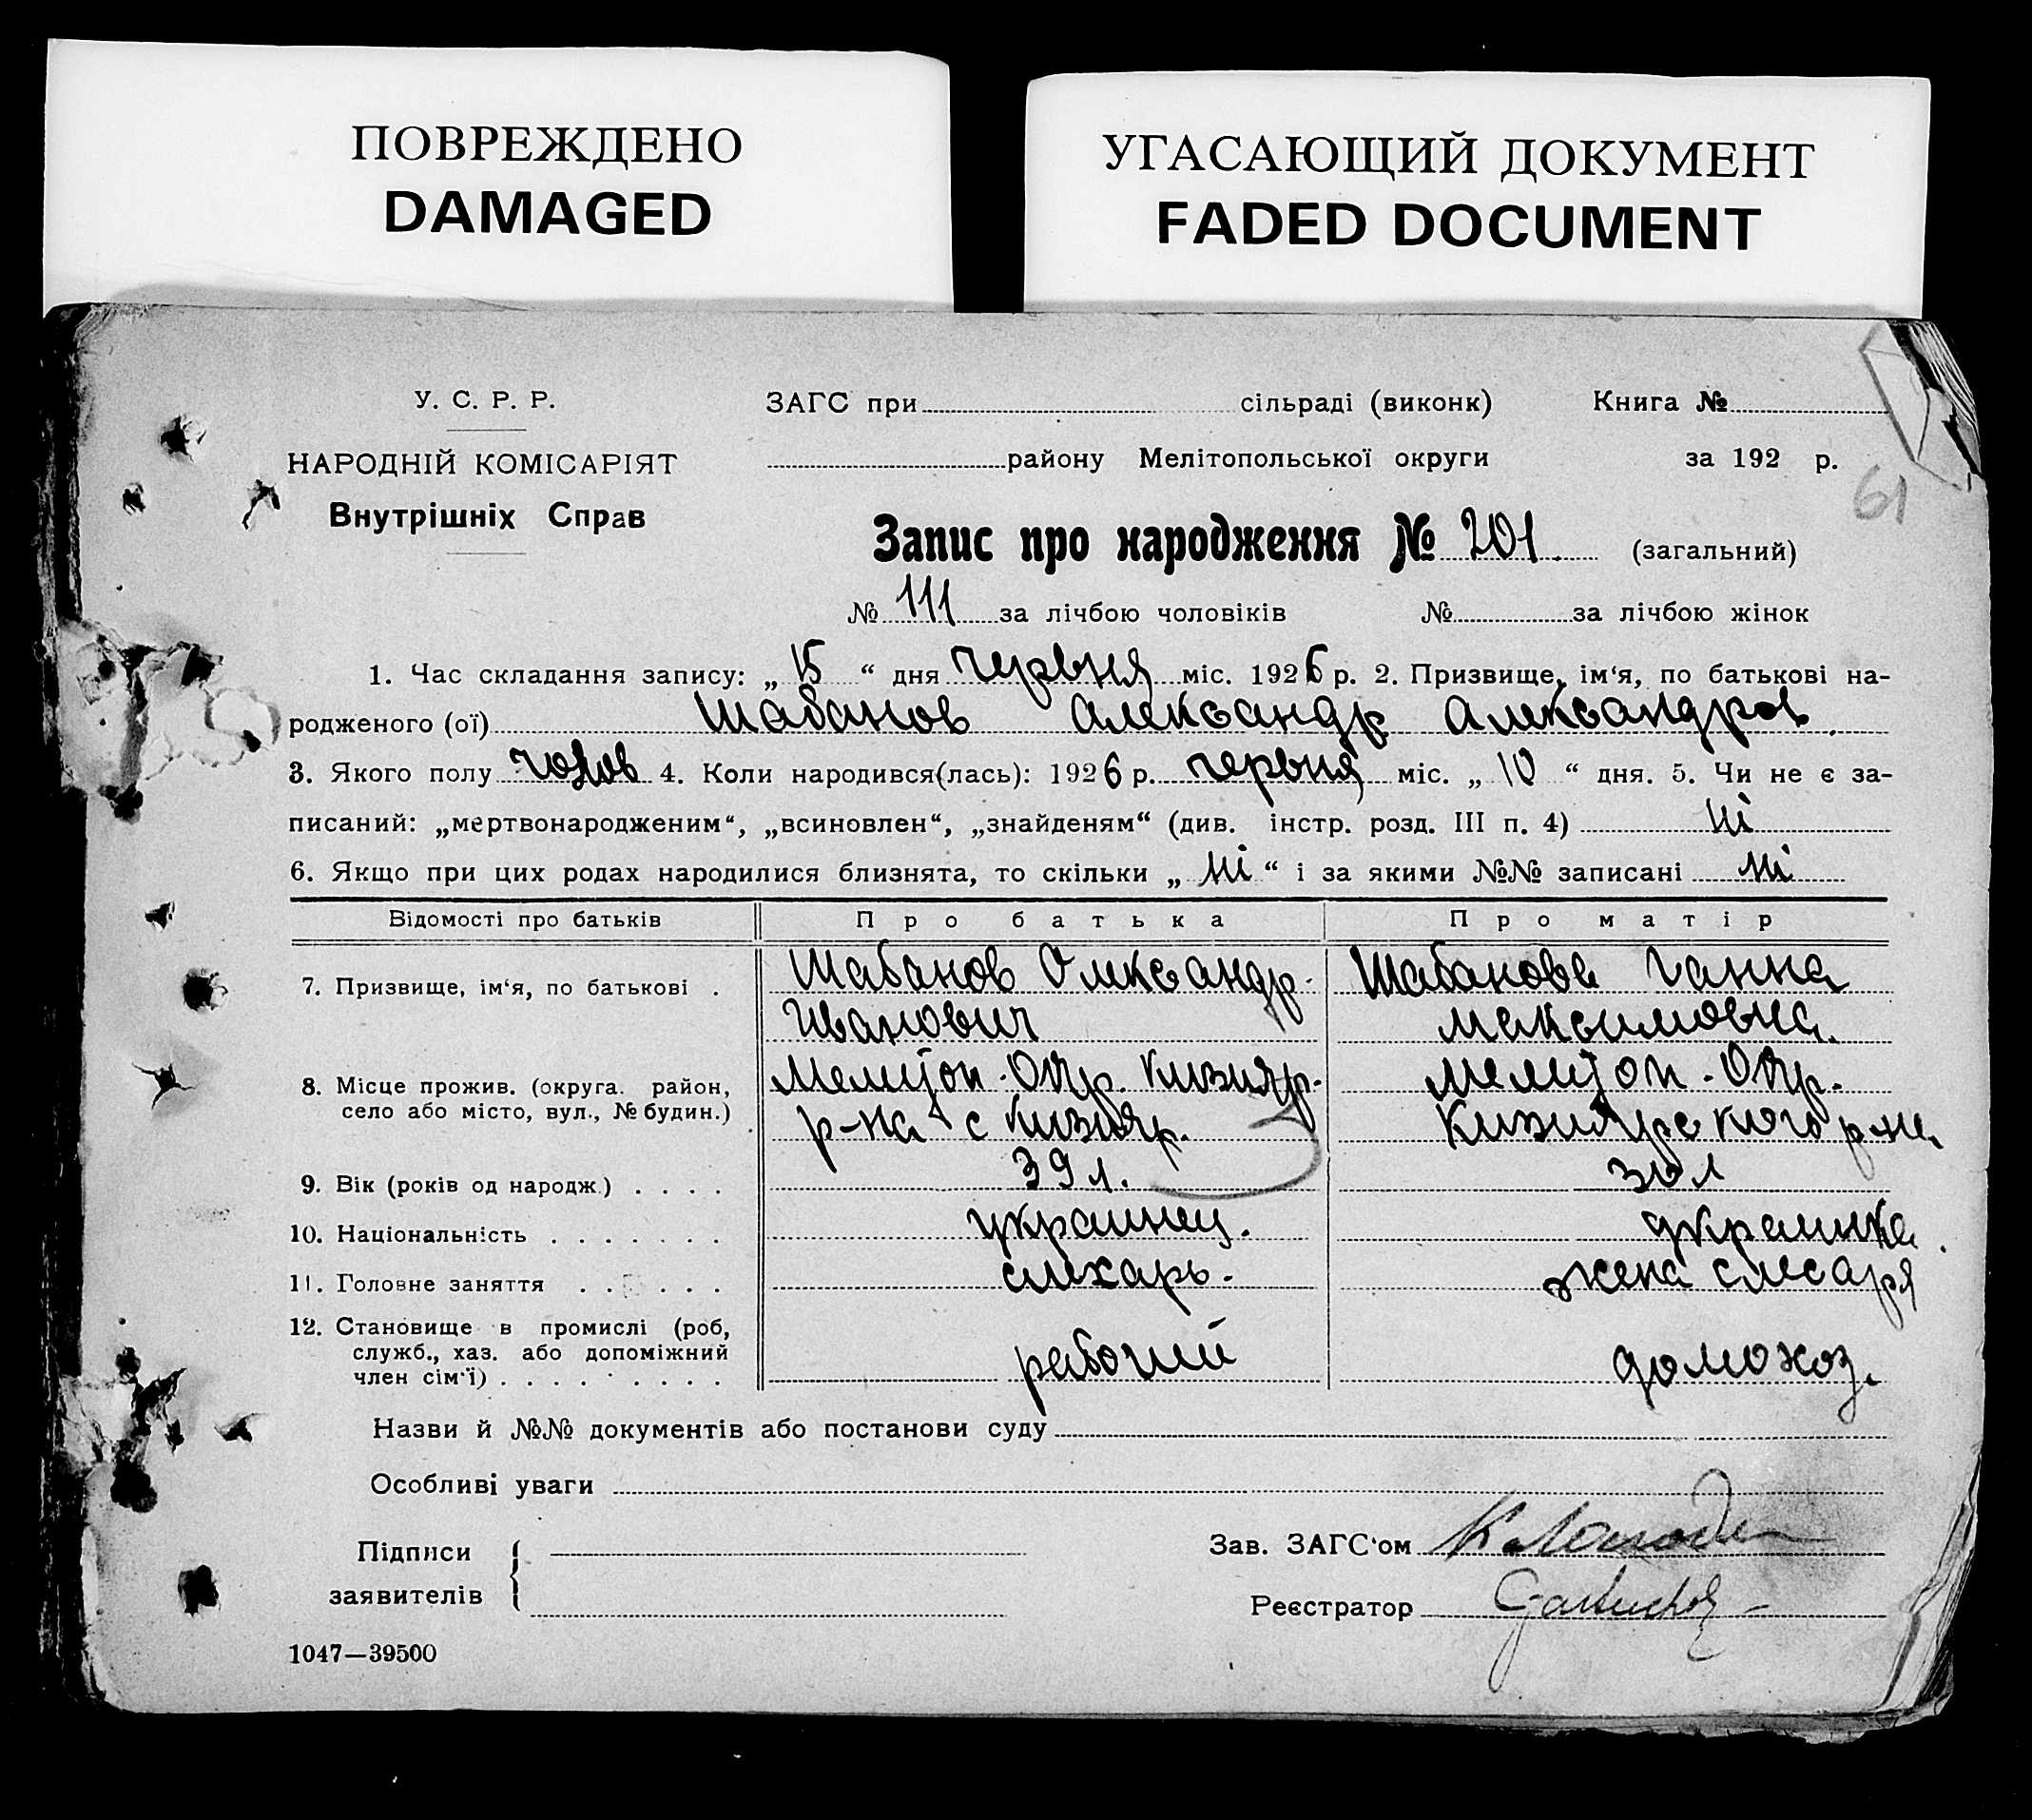 ПОВРЕЖДЕНО
DAMAGED
УГАСАЮЩИЙ ДОКУМЕНТ
FADED DOCUMENT
У. С. Р. Р.
НАРОДНІЙ КОМІСАРІЯТ
Внутрішніх Справ
ЗАГС при сільраді (виконк) Книга №
району Мелітопольської округи за 192 р.
61
Запис про народження № 201 (загальний)
№ 111 за лічбою чоловіків № за лічбою жінок
1. Час складання запису: „ 15 “ дня червня міс. 1926 р. 2. Призвище, ім‘я, по батькові на-
родженого (ої) Шабанов Александр Александров
3. Якого полу чолов 4. Коли народився(лась): 1926 р. червня міс. „ 10 “ дня. 5. Чи не є за-
писаний: „мертвонародженим“, „всиновлен“, „знайденям“ (див. інстр. розд. III п. 4) ні
6. Якщо при цих родах народилися близнята, то скільки „ ні “ і за якими №№ записані ні
Відомості про батьків Про батька Про матір
7. Призвище, ім‘я, по батькові . Шабанов Олександр. Шабанова Ганна
Иванович Максимовна.
8. Місце прожив. (округа. район, Мелитоп. Окр. Кизияр. Мелитоп. Окр.
село або місто, вул., № будин.) р-на с Кизияр. Кизиярского р-на.
9. Вік (років од народж.) . . . . 39 л. 30 л
10. Національність . . . . . . . украинец. украинка.
11. Головне заняття . . . . . . слюсарь. жена слесаря
12. Становище в промислі (роб,
служб., хаз. або допоміжний рабочий домохоз.
член сім‘ї) . . . . . . . . .
Назви й №№ документів або постанови суду
Особливі уваги
Підписи
заявителів
Зав. ЗАГС‘ом
Реєстратор
1047—39500